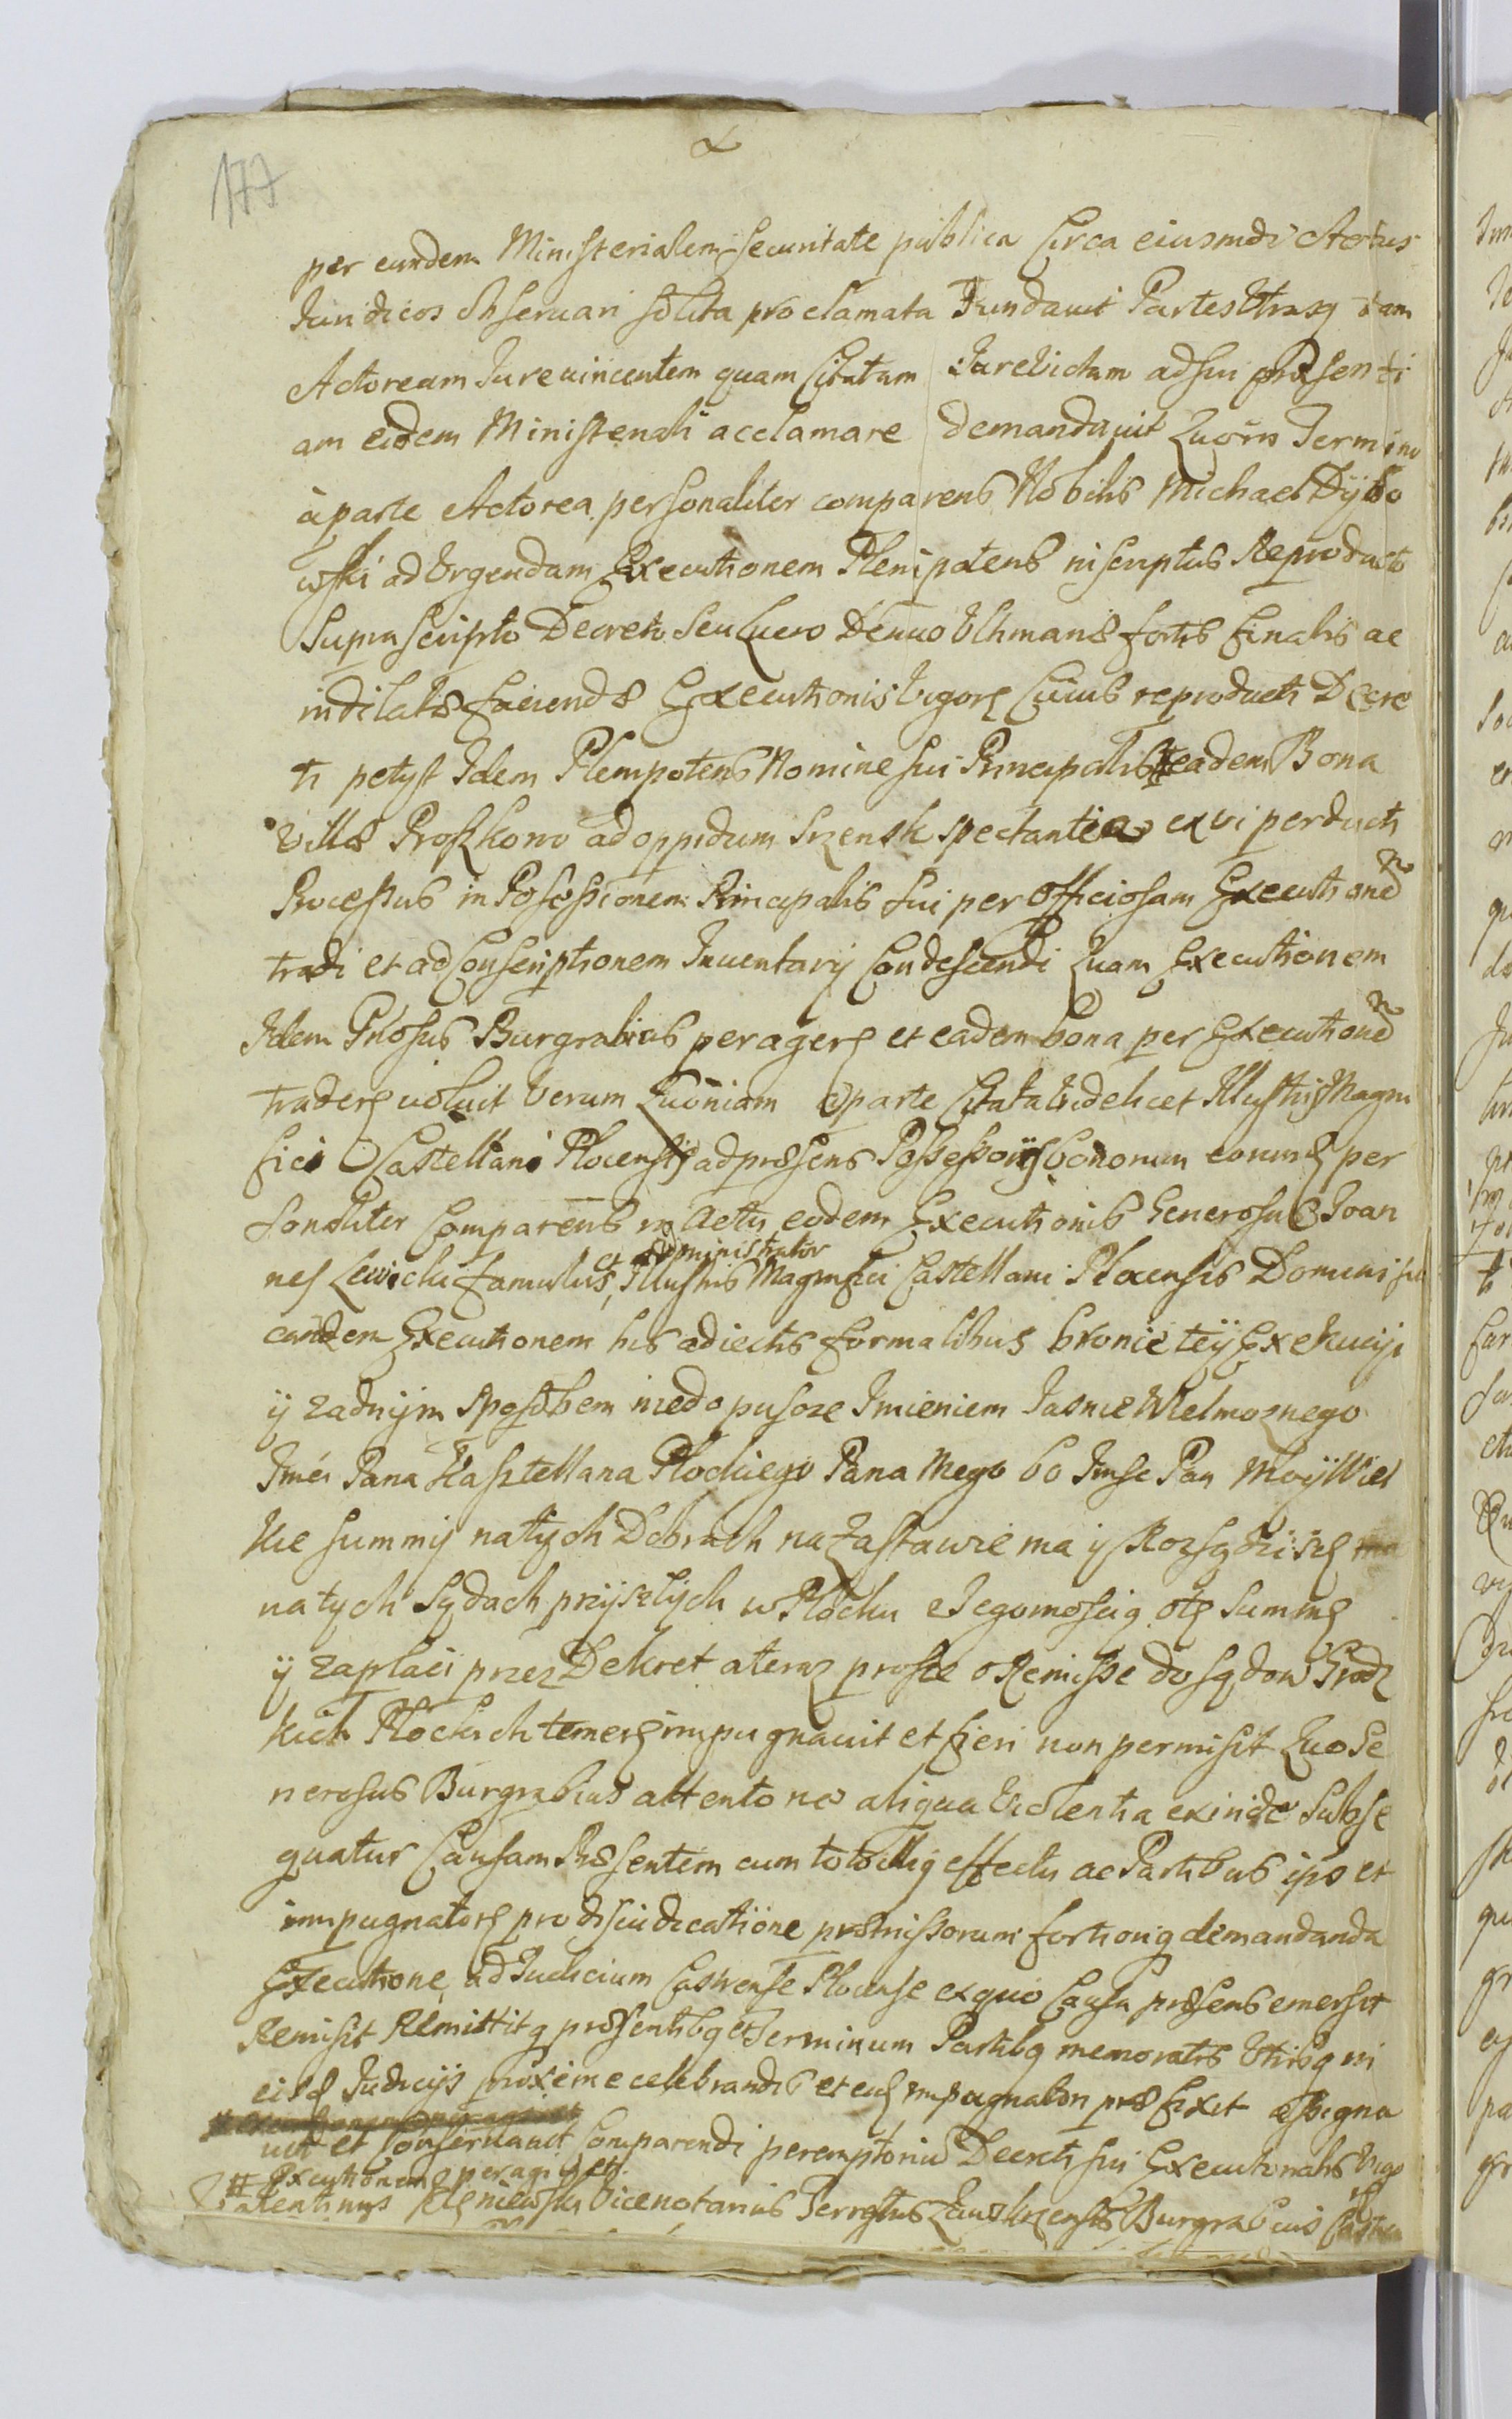 177
per eundem Ministerialem securitate publica Circa eiusmdi Actus
Juridicos observari solita proclamata Fundavit Partes Utrasq tam
Actoream Jurevincentem quam Citatam Jurevictam ad sui præsenti
am eidem Ministeriali acclamare demandavit Quorū Termino
à parte Actorea personaliter comparens Nobilis Michael Dÿbo
wski ad Urgendam Executionem Plenipotens inscriptus Reproducto
Suprascripto Decreto seu Luero ultimariæ fortis finalis ac
indilatæ faciendæ Executionis Vigore Cuius reproducti Decre
ti petyst Idem Plenipotens Nomine sui Principalis eadem Bona
villæ Proszkowo ad oppidum Szrensk spectantia ex vi perducti
Processus in Possessionem Principalis sui per officiosam Executione
tradi et ad Conscriptionem Inventarij Condescendi Quam Executionem
Idem Gnosus Burgrabius peragere et eadem bona per Executione
tradere voluit Verum Quoniam à parte Citata videlicet Illustris Magni
fici Castellani Plocensis ad præsens Possessoris bonorum eorume per
sonaliter Comparens in actu eodem Executionis Generosus Joan
nes Lewicki famulus, et administrator Illustris Magnifici Castellani Plocensis Domini sui
eandem Executionem his adiectis formalibus bronie teÿ Exekucyi
ÿ zadnÿm sposobem niedopuszcze Imieniem Jasnie Wielmoznego
Imci Pana Kasztellana Plockiego Pana mego bo Imsc Pan moÿ Wiel
kie summÿ na tÿch Dobrach na Zastawie ma ÿ Rozsądzi się
na tych Sądach przÿszlÿch w Plocku z Jegomoscią o tę summę
ÿ zaplaci przez Dekret a teraz prosze o Remisse do sądow Grodz
kich Plockich temere impugnavit et fieri non permisit Quo Ge
nerosus Burgrabius attento ne aliqua Violentia exinde subse
quatur Causam Præsentem cum toto illiq effectu ac Partibus ipso et
impugnatore pro disiudicatione præmissorum fortioriq demandanda
Executione ad Iudicium Castrense Plocense ex quo Causa præsens emersit
Remisit Remittitq præsentibq et Terminum Partibq memoratis Utrisq in
eisd Iudicijs proxime celebrandis et impugnatori præfixit assigna
vit et Conservavit Comparendi peremptoriu Decreti sui Executorialis Vigo
# Executionem peragi
Vicenotarius Terrestris Zawskrzensis Burgrabius Castren